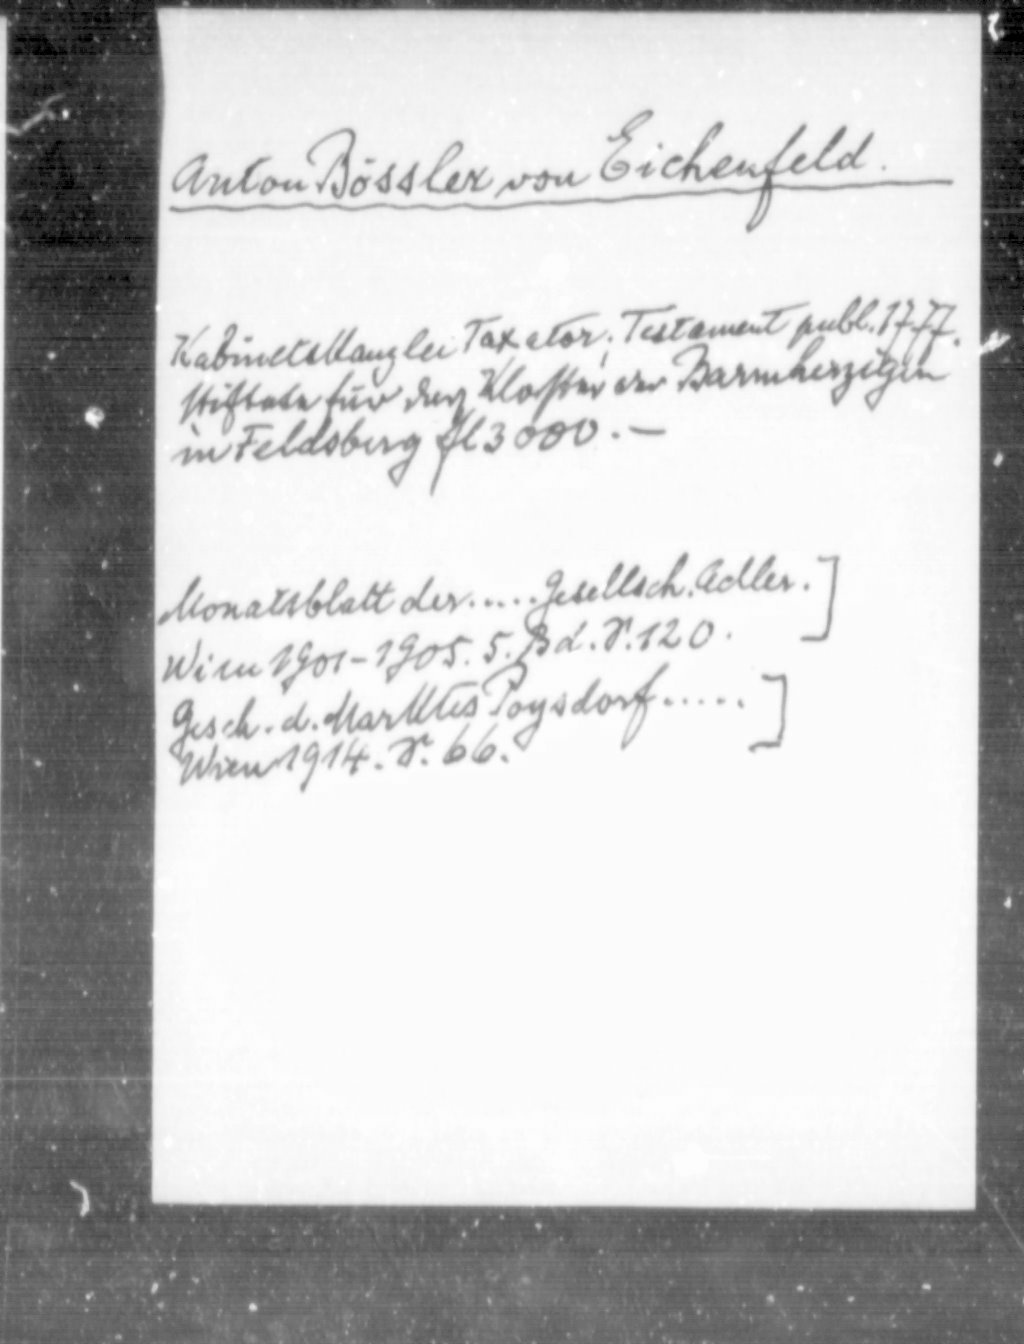 Anton Bössler von Eichenfeld.
Kabinetskanzlei Taxator; Testament publ. 1777.
stiftete für das Kloster der Barmherzigen
in Feldsberg fl 3000.—
Monatsblatt der..... Gesellsch. Adler.]
Wien 1901-1905. 5. Bd. S. 120.
Gesch. d. Marktes Poysdorf.....]
Wien 1914. S. 66.